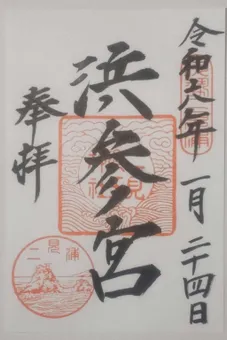 令和八年
一月二十四日
浜参宮
奉拝
二見浦